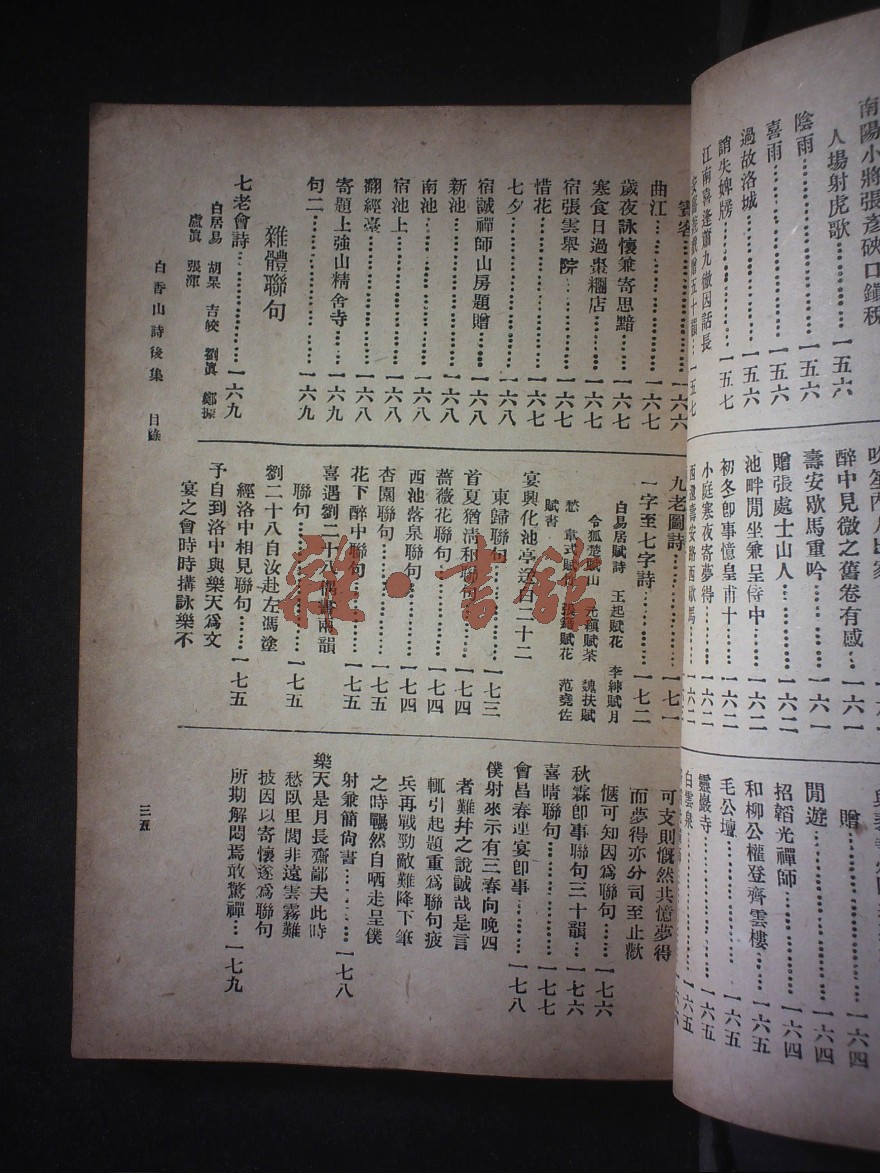 南陽小將張彥硤口鎮稅
人場射虎歌……一五六
陰雨……一五六
喜雨……一五六
過故洛城……一五六
誚失婢牓……一五七
江南喜逢蕭九徹因話長
五十韻…一五七
醉中見微之舊卷有感…一六一
壽安歇馬重吟……一六一
贈張處士山人……一六二
池畔閒坐兼呈侍中…一六二
初冬卽事憶皇甫十…一六二
小庭寒夜寄夢得……一六二
西還壽安路西歇馬……一六二
贈……一六四
閒遊……一六四
招韜光禪師……一六四
和柳公權登齊雲樓……一六五
毛公壇……一六五
靈巖寺……一六五
白雲泉……一六五
寄客……一六六
曲江……一六七
歲夜詠懷兼寄思黯…一六七
寒食日過棗糰店……一六七
宿張雲舉院……一六七
惜花……一六七
七夕……一六八
宿誠禪師山房題贈……一六八
新池……一六八
南池……一六八
宿池上……一六八
翻經臺……一六八
寄題上強山精舍寺……一六九
句二……一六九
雜體聯句
七老會詩……一六九
白居易 胡杲 吉皎 劉眞 鄭據
盧眞 張渾
九老圖詩……一七一
一字至七字詩……一七二
白易居賦詩 王起賦花 李紳賦月
令狐楚賦山 元稹賦茶 魏扶賦
愁 韋式賦竹 張籍賦花 范堯佐
賦書
宴興化池亭送白二十二
東歸聯句……一七三
首夏猶淸和聯句……一七四
薔薇花聯句……一七四
西池落泉聯句……一七四
杏園聯句……一七五
花下醉中聯句……一七五
喜遇劉二十八偶書兩韻
聯句……一七五
劉二十八自汝赴左馮塗
經洛中相見聯句……一七五
予自到洛中與樂天爲文
宴之會時時搆詠樂不
可支則慨然共憶夢得
而夢得亦分司至止歡
愜可知因爲聯句……一七六
秋霖卽事聯句三十韻…一七六
喜晴聯句……一七七
會昌春連宴卽事……一七八
僕射來示有三春向晚四
者難幷之說誠哉是言
輒引起題重爲聯句疲
兵再戰勁敵難降下筆
之時囅然自哂走呈僕
射兼簡尙書……一七八
樂天是月長齋鄙夫此時
愁臥里閭非遠雲霧難
披因以寄懷遂爲聯句
所期解悶焉敢驚禪…一七九
白香山詩後集 目錄
三五
雜·書館